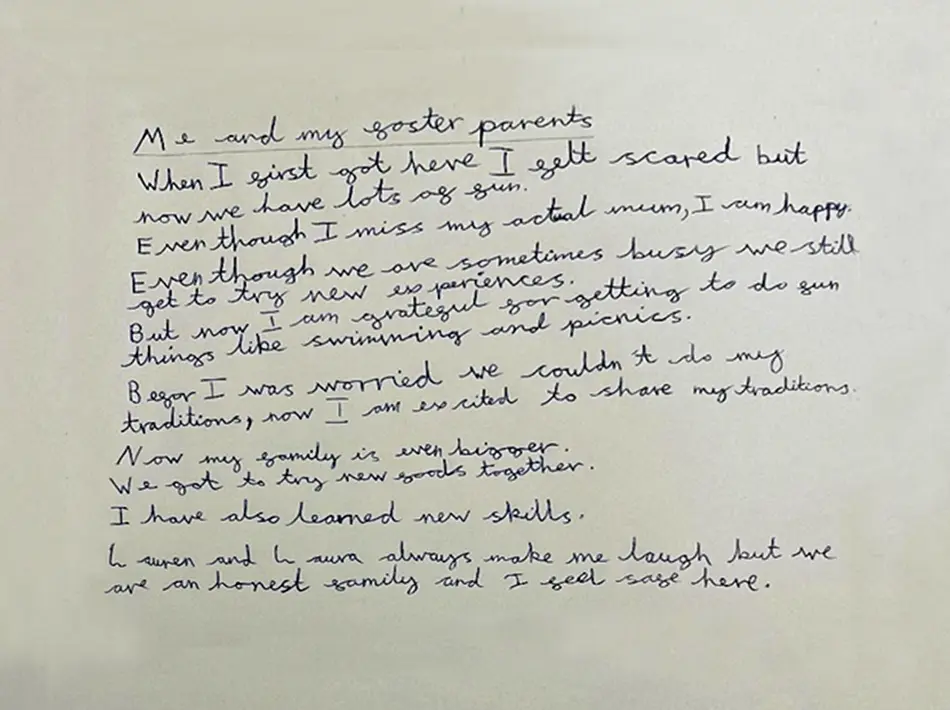 Me and my foster parents
When I first got here I felt scared but
now we have lots of fun.
Even though I miss my actual mum, I am happy.
Even though we are sometimes busy we still
get to try new experiences.
But now I am grateful for getting to do fun
things like swimming and picnics.
Befor I was worried we couldn't do my
traditions, now I am excited to share my traditions.
Now my family is even bigger.
We got to try new foods together.
I have also learned new skills.
Lauren and Laura always make me laugh but we
are an honest family and I feel safe here.